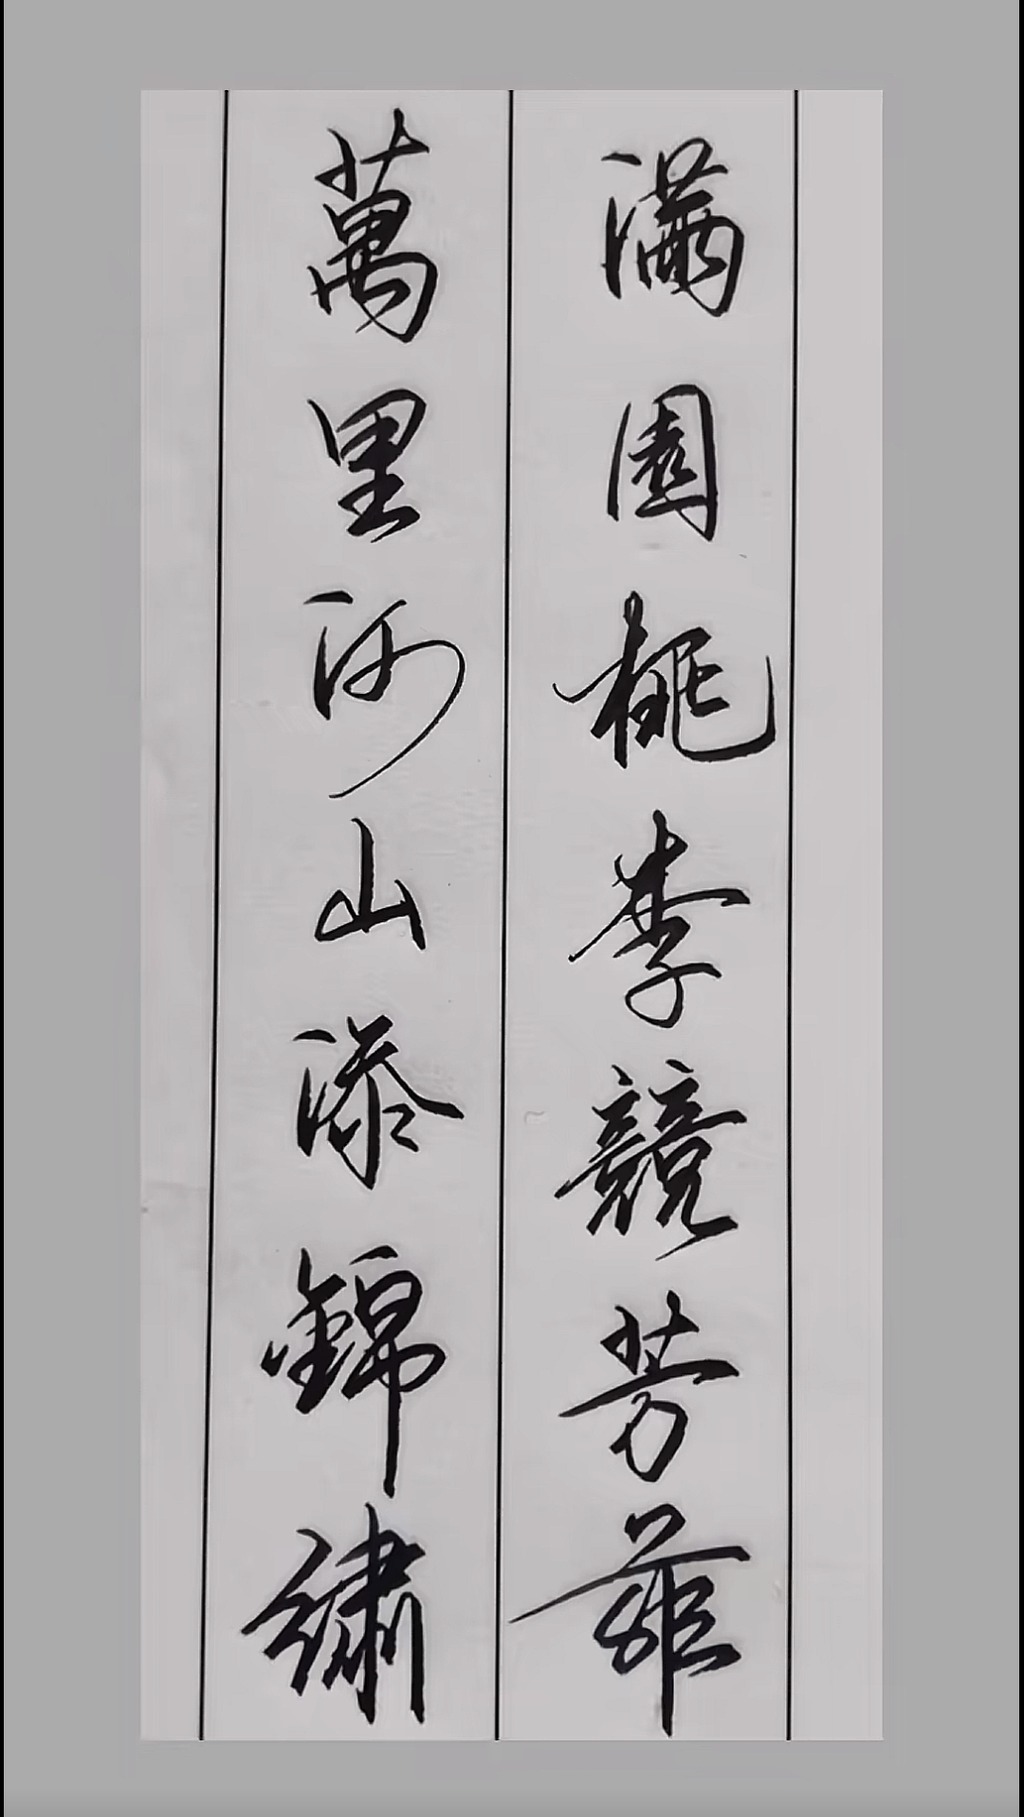 滿園桃李競芳菲
萬里河山添錦繡